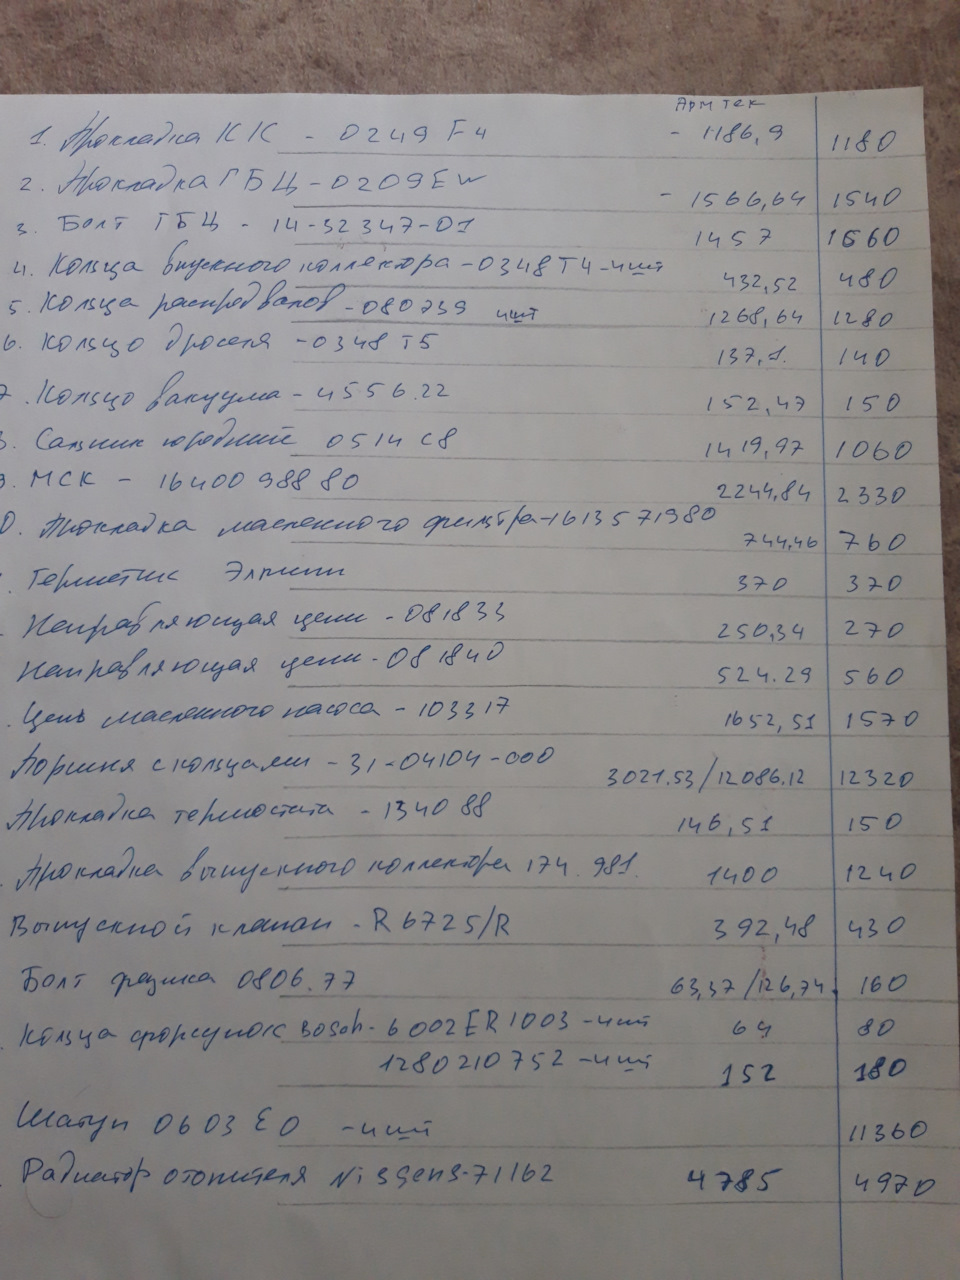 Армтек
1. Прокладка КК - 0249F4 - 1186,9 1180
2. Прокладка ГБЦ - 0209EW - 1566,64 1540
3. Болт ГБЦ - 14-32347-01 1457 1560
4. Кольца впускного коллектора - 0348T4 - 4шт 432,52 480
5. Кольца распредвалов - 080739 4шт 1268,64 1280
6. Кольцо дроселя - 0348T5 137,1. 140
7. Кольцо вакуума - 4556.22 152,47 150
Сальник 0514C8 1419,97 1060
МСК - 1640098880 2244,84 2330
0. Прокладка масленного фильтра - 1613571980 744,46 760
Герметик Элринг 370 370
Направляющая цепи - 081833 250,34 270
Направляющая цепи - 081840 524.29 560
Цепь масленного насоса - 103317 1652,51 1570
Поршня с кольцами - 31-04104-000 3021.53/12086.12 12320
Прокладка термостата - 134088 146,51 150
Прокладка выпускного коллектора 174.981. 1400 1240
Выпускной клапан - R6725/R 392,48 430
Болт фазика 0806.77 63,37/126,74. 160
Кольца форсунок Bosch - 6002ER1003 - 4шт 64 80
1280210752 - 4шт 152 180
Шатун 0603E0 - 4шт 11360
Радиатор отопителя Nissens-71162 4785 4970